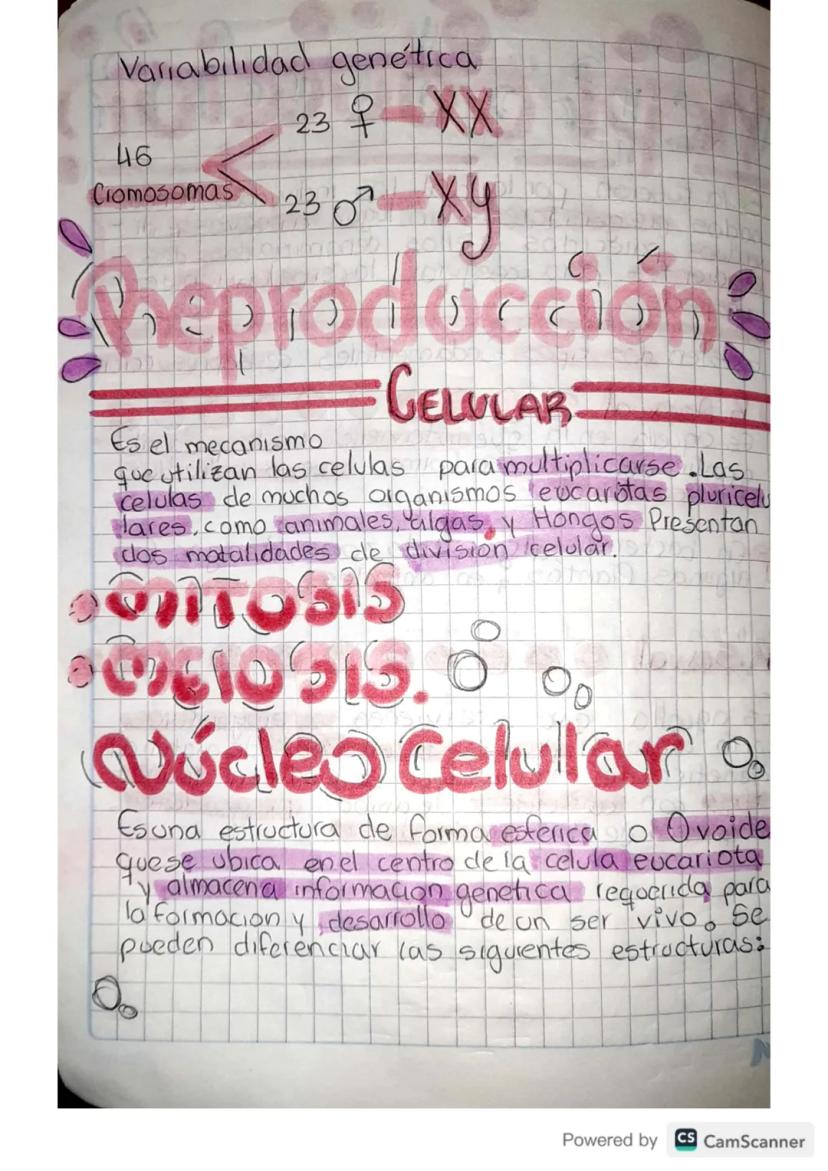 Variabilidad genética
23 ♀ - XX
46
Cromosomas
23 ♂ - Xy
Reproducción
CELULAR
Es el mecanismo
que utilizan las celulas para multiplicarse. Las
celulas de muchos organismos eucariotas pluricelu
lares, como animales, algas, y Hongos Presentan
dos motalidades de división celular.
MITOSIS
MEIOSIS.
Núcleo Celular
Es una estructura de forma esferica o Ovoide
que se ubica en el centro de la celula eucariota
y almacena informacion genetica requerida para
la formacion y desarrollo de un ser vivo. Se
pueden diferenciar las siguientes estructuras:
Powered by CS CamScanner